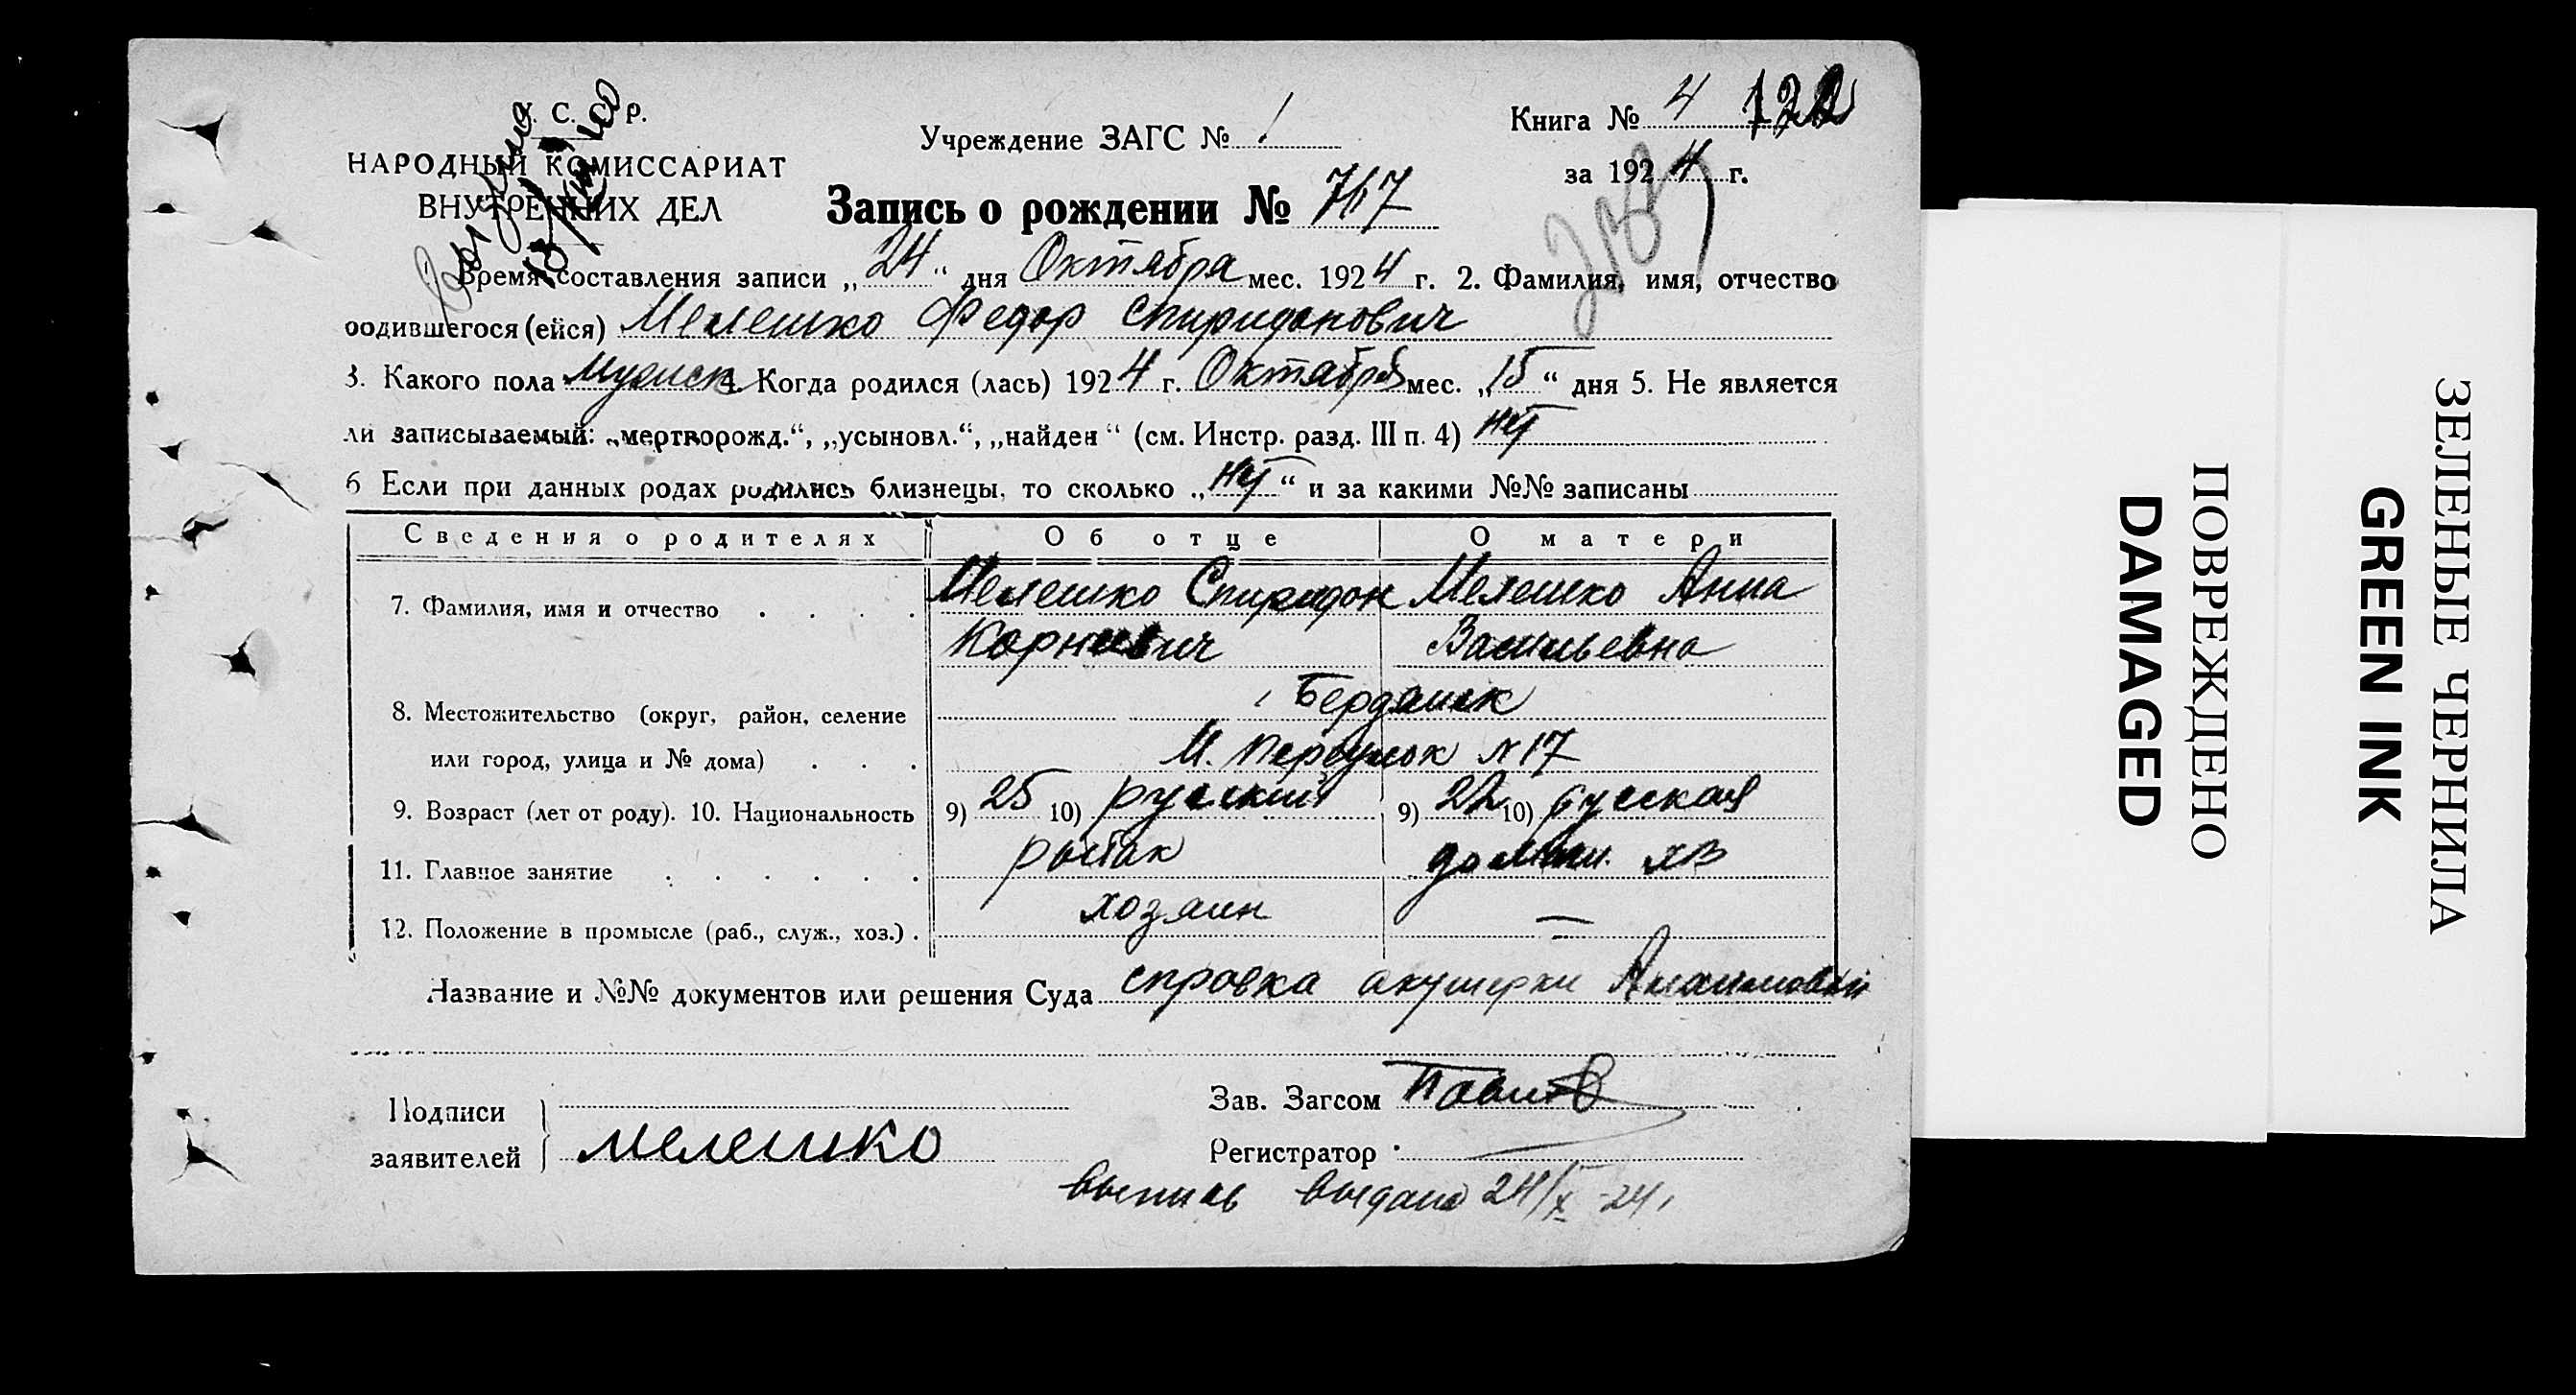 У. С. С. Р.
НАРОДНЫЙ КОМИССАРИАТ
ВНУТРЕННИХ ДЕЛ
Учреждение ЗАГС № 1
Книга № 4 122
за 1924 г.
Запись о рождении № 717
Время составления записи „24“ дня Октября мес. 1924 г. 2. Фамилия, имя, отчество
родившегося (ейся) Мелешко Федор Спиридонович
3. Какого пола мужск 4. Когда родился (лась) 1924 г. Октября мес. „15“ дня 5. Не является
ли записываемый: „мертворожд.“, „усыновл.“, „найден“ (см. Инстр. разд. III п. 4) нет
6 Если при данных родах родились близнецы, то сколько „нет“ и за какими №№ записаны
Сведения о родителях Об отце О матери
7. Фамилия, имя и отчество Мелешко Спиридон Мелешко Анна
Корнеевич Васильевна
8. Местожительство (округ, район, селение Бердянск
или город, улица и № дома) М. переулок № 17
9. Возраст (лет от роду). 10. Национальность 9) 25 10) русский 9) 22 10) русская
11. Главное занятие рыбак домаш. хз
12. Положение в промысле (раб., служ., хоз.) хозяин —
Название и №№ документов или решения Суда справка акушерки
Подписи
заявителей мелешко
Зав. Загсом
Регистратор
выпись выдана 24/X-24
ПОВРЕЖДЕНО
DAMAGED
ЗЕЛЕНЫЕ ЧЕРНИЛА
GREEN INK